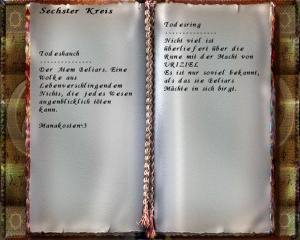 Sechster Kreis
Todeshauch
---------------
Der Atem Beliars. Eine
Wolke aus
Lebenverschlingendem
Nichts, die jedes Wesen
augenblicklich töten
kann.
Manakosten:3
Todesring
---------------
Nicht viel ist
überliefert über die
Rune mit der Macht von
URIZIEL
Es ist nur soviel bekannt,
als das sie Beliars
Mächte in sich birgt.